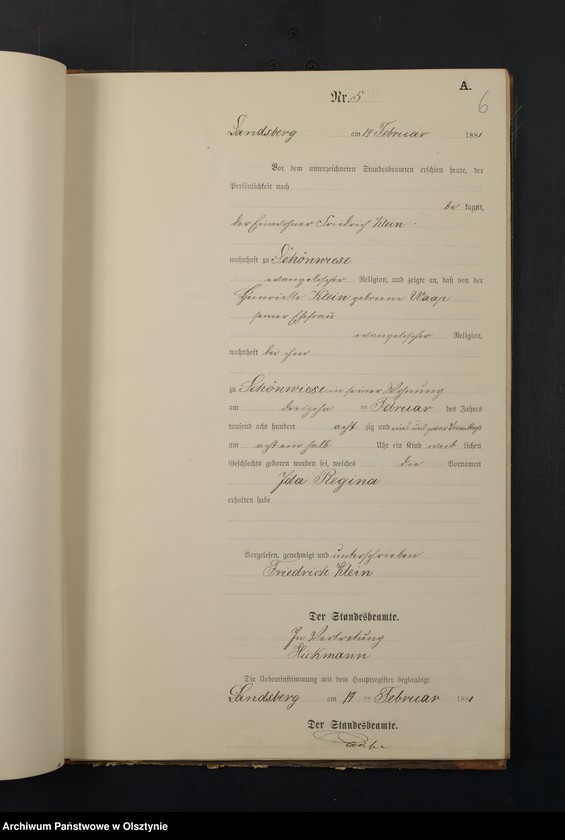 A.
6
Nr. 5
Landsberg am 19 Februar 1881
Vor dem unterzeichneten Standesbeamten erschien heute, der
Persönlichkeit nach
be kannt,
der Einwohner Friedrich Klein
wohnhaft zu Schönwiese
evangelischer Religion, und zeigte an, daß von der
Henriette Klein geborene Waap
seiner Ehefrau
evangelischer Religion,
wohnhaft bei ihm
zu Schönwiese in seiner Wohnung
am dreizehn ten Februar des Jahres
tausend acht hundert acht zig und eins und zwar Vormittags
um acht ein halb Uhr ein Kind weib lichen
Geschlechts geboren worden sei, welches die Vornamen
Ida Regina
erhalten habe
Vorgelesen, genehmigt und unterschrieben
Friedrich Klein
Der Standesbeamte.
In Vertretung
Die Uebereinstimmung mit dem Hauptregister beglaubigt.
Landsberg am 19 ten Februar 1881
Der Standesbeamte.
Archiwum Państwowe w Olsztynie